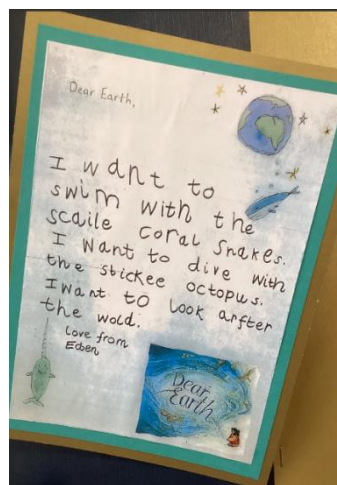 Dear Earth,
I want to
swim with the
scaile coral snakes.
I want to dive with
the stickee octopus.
I want to look arfter
the wold.
Love from
Eden
Dear
Earth